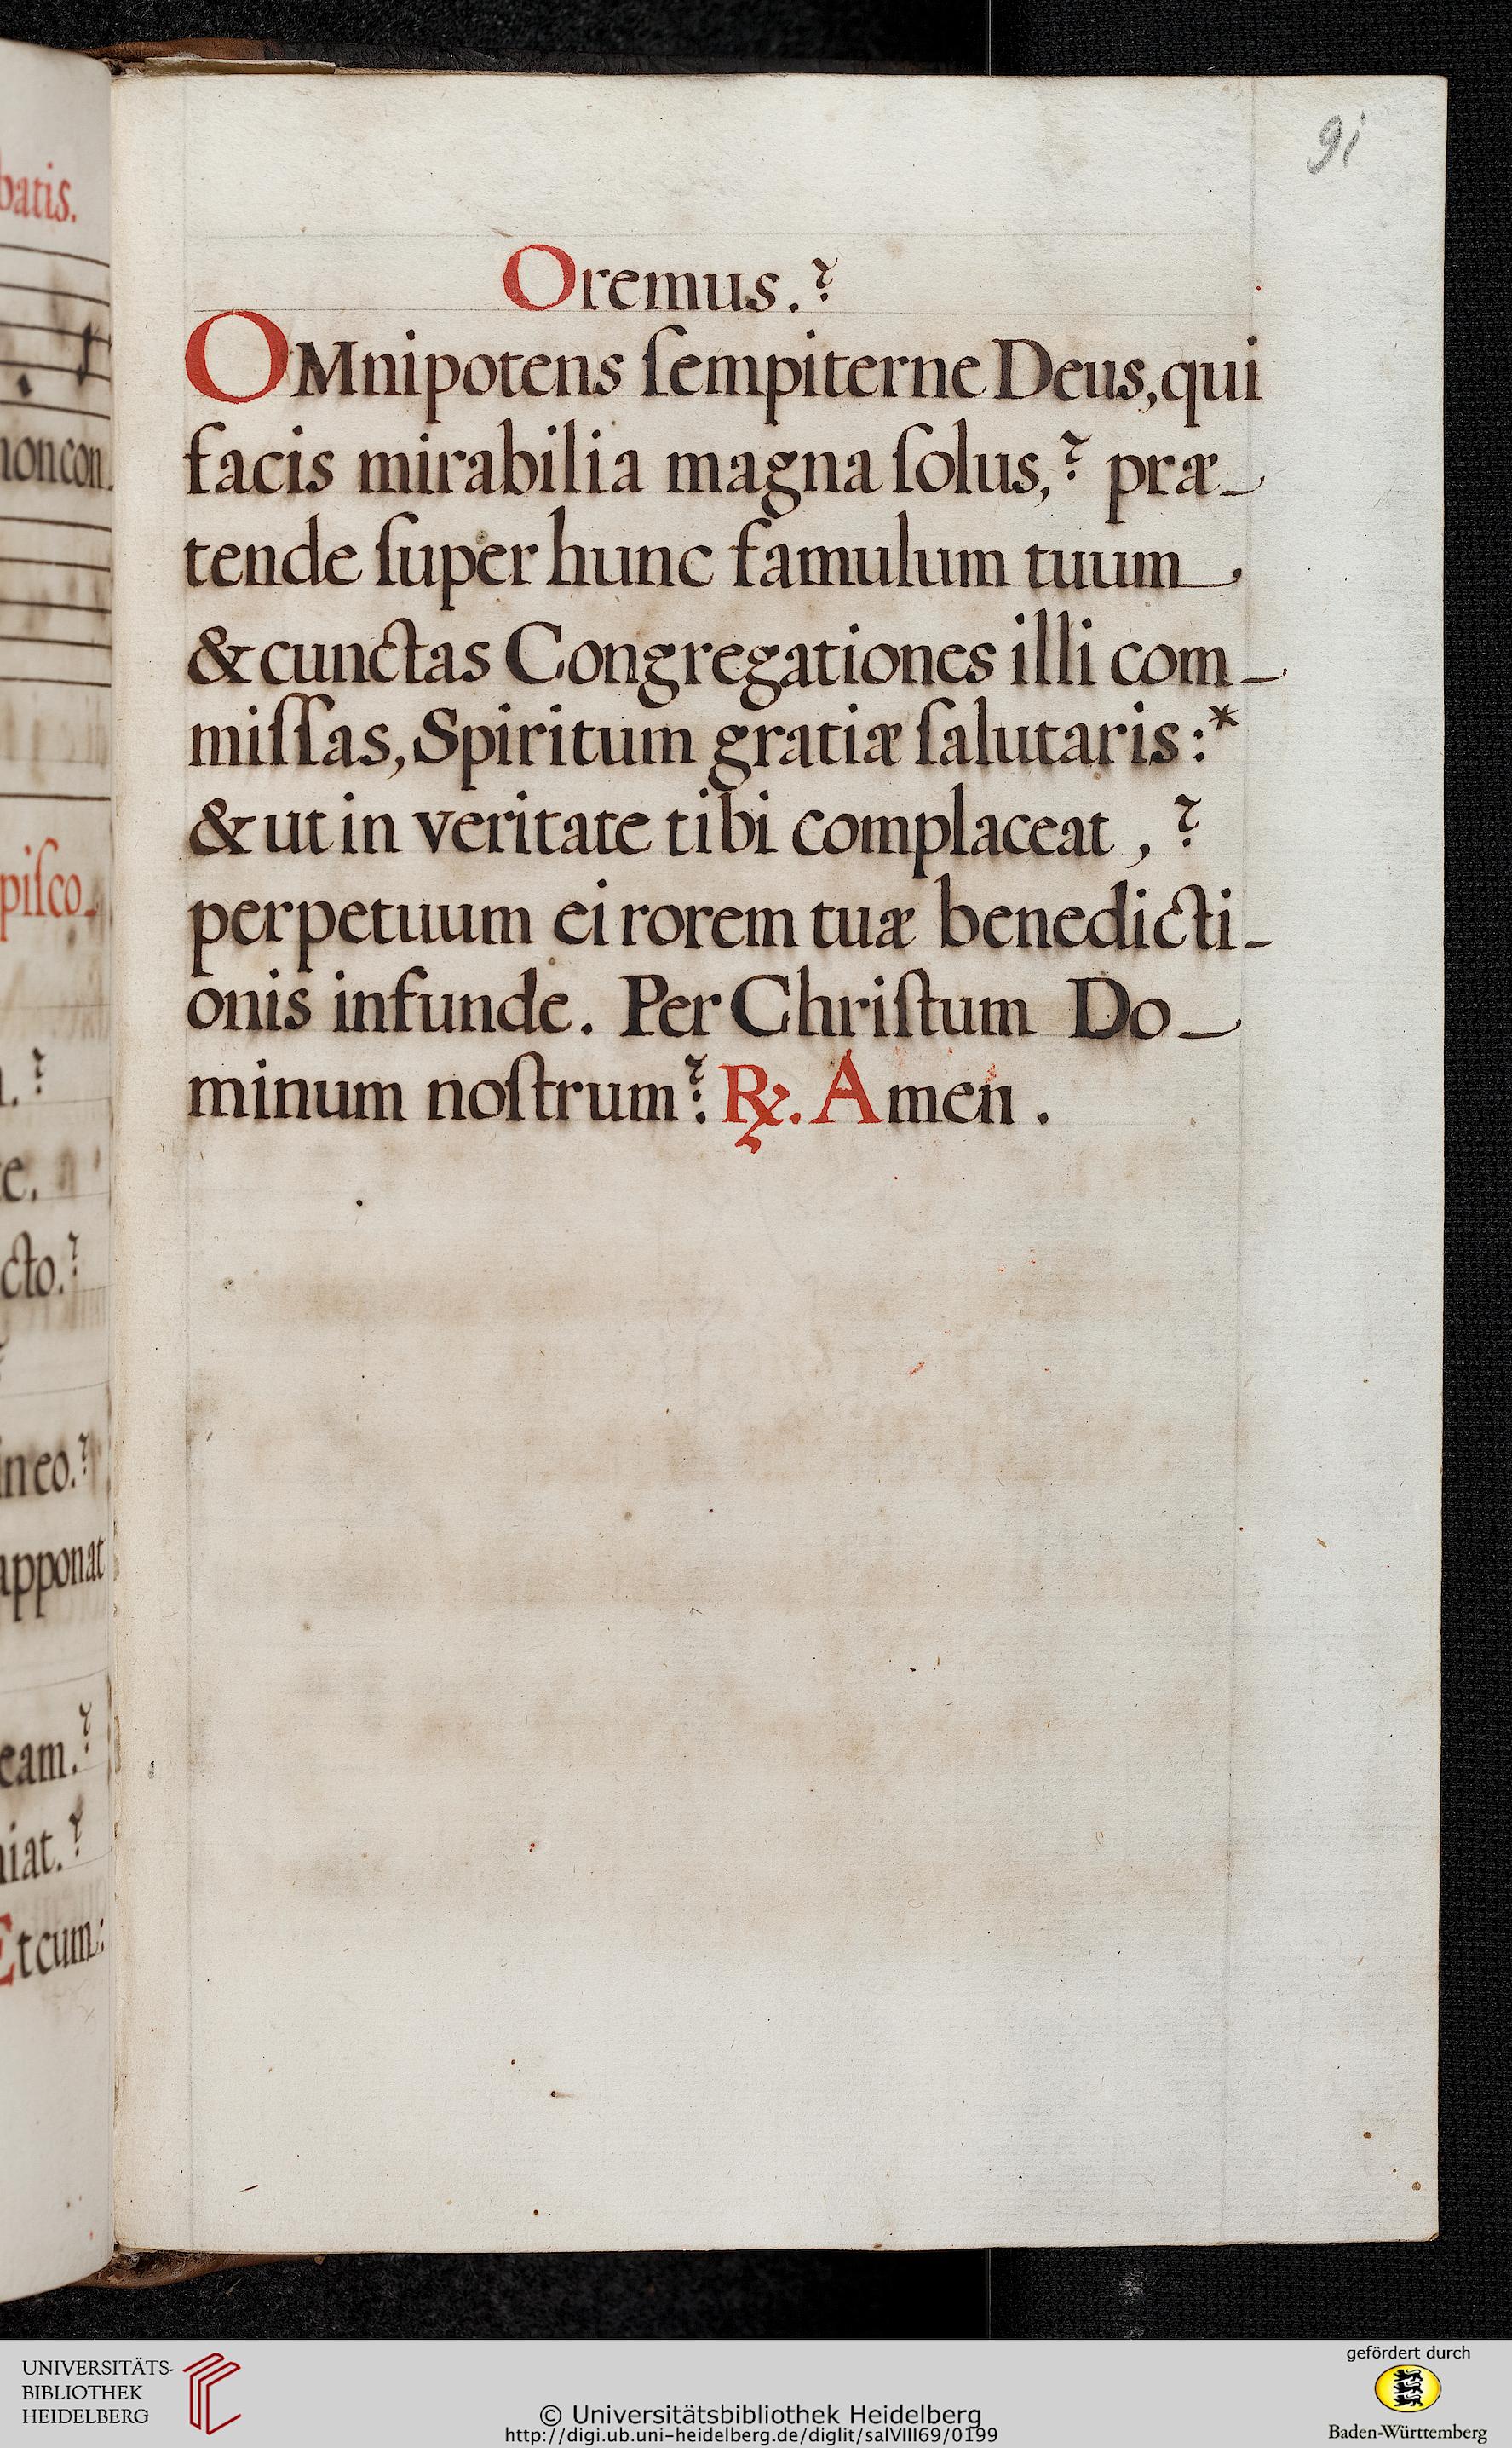 91
Oremus.?
OMnipotens ſempiterne Deus, qui
facis mirabilia magna ſolus,? præ-
tende ſuper hunc famulum tuum
& cunctas Congregationes illi com-
miſſas, Spiritum gratiæ ſalutaris:*
& ut in veritate tibi complaceat,?
perpetuum ei rorem tuæ benedicti-
onis infunde. Per Chriſtum Do-
minum noſtrum? ℞. Amen.
batis.
noncon.
piſco-
.?
e.
cto.?
in eo.?
apponat
eam.?
niat.?
Et cum:
UNIVERSITÄTS-
BIBLIOTHEK
HEIDELBERG
© Universitätsbibliothek Heidelberg
http://digi.ub.uni-heidelberg.de/diglit/salVIII69/0199
gefördert durch
Baden-Württemberg